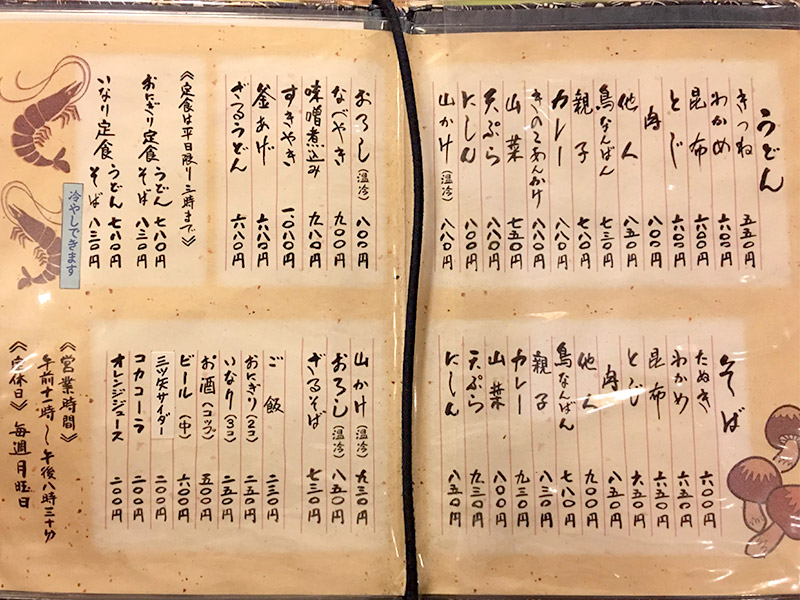 うどん
きつね 五五〇円
わかめ 六〇〇円
昆布 六〇〇円
とじ 六〇〇円
肉 八〇〇円
他人 八五〇円
鳥なんばん 七三〇円
親子 七八〇円
カレー 八八〇円
きのこあんかけ 八〇〇円
山菜 七五〇円
天ぷら 八八〇円
にしん 八〇〇円
山かけ(温冷) 八八〇円
おろし(温冷) 八〇〇円
なべやき 九〇〇円
味噌煮込み 九八〇円
すきやき 一、〇八〇円
釜あげ 六八〇円
ざるうどん 六八〇円
《定食は平日限り三時まで》
おにぎり定食 うどん 七八〇円
そば 八三〇円
いなり定食 うどん 七八〇円
そば 八三〇円
冷やしできます
そば
たぬき 六〇〇円
わかめ 六五〇円
昆布 六五〇円
とじ 六五〇円
肉 八五〇円
他人 九〇〇円
鳥なんばん 七八〇円
親子 八三〇円
カレー 九三〇円
山菜 八〇〇円
天ぷら 九三〇円
にしん 八五〇円
山かけ(温冷) 九三〇円
おろし(温冷) 八五〇円
ざるそば 七三〇円
ご飯 二三〇円
おにぎり(2コ) 二五〇円
いなり(3コ) 二五〇円
お酒(コップ) 五〇〇円
ビール(中) 六〇〇円
三ツ矢サイダー 二〇〇円
コカコーラ 二〇〇円
オレンジジュース 二〇〇円
《営業時間》
午前十一時〜午後八時三十分
《定休日》毎週月曜日